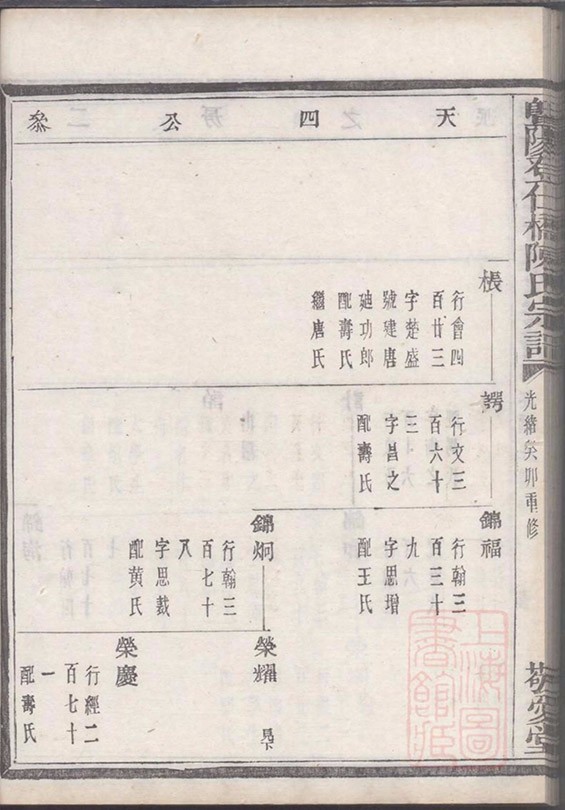 陳氏宗譜
光緒癸卯重修
敬愛堂
天四公系
棖
行會四
百廿三
字楚盛
號建唐
迪功郎
配壽氏
繼唐氏
諤
行文三
百六十
三
字昌之
配壽氏
錦福
行翰三
百三十
九
字思增
配王氏
錦炯
行翰三
百七十
八
字思裁
配黄氏
榮耀
見下
榮慶
行經二
百七十
一
配壽氏
上海圖書館藏